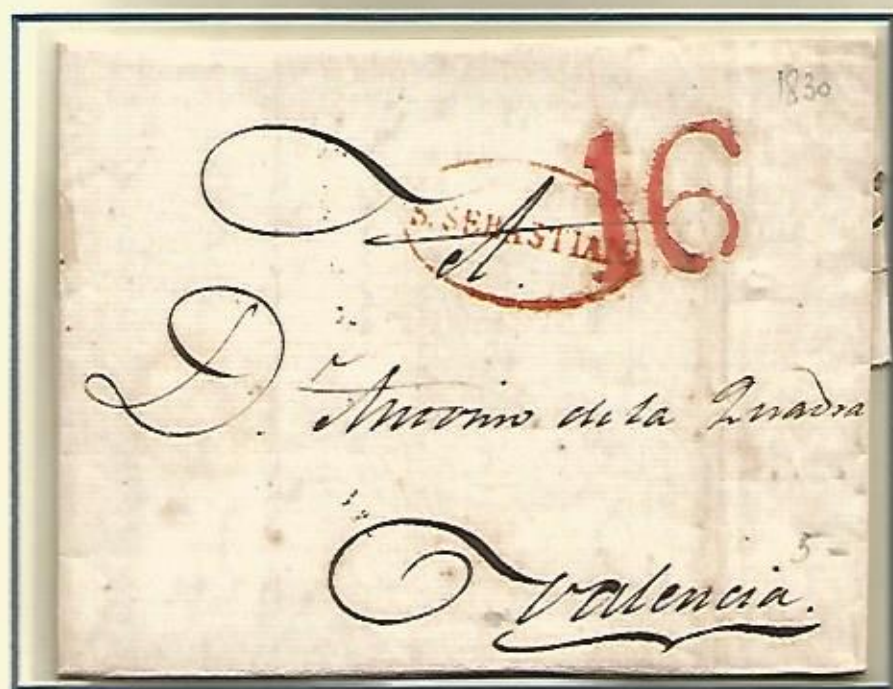 1830
16
S. SEBASTIAN
A.
D. Antonio de la Quadra
5
Valencia.